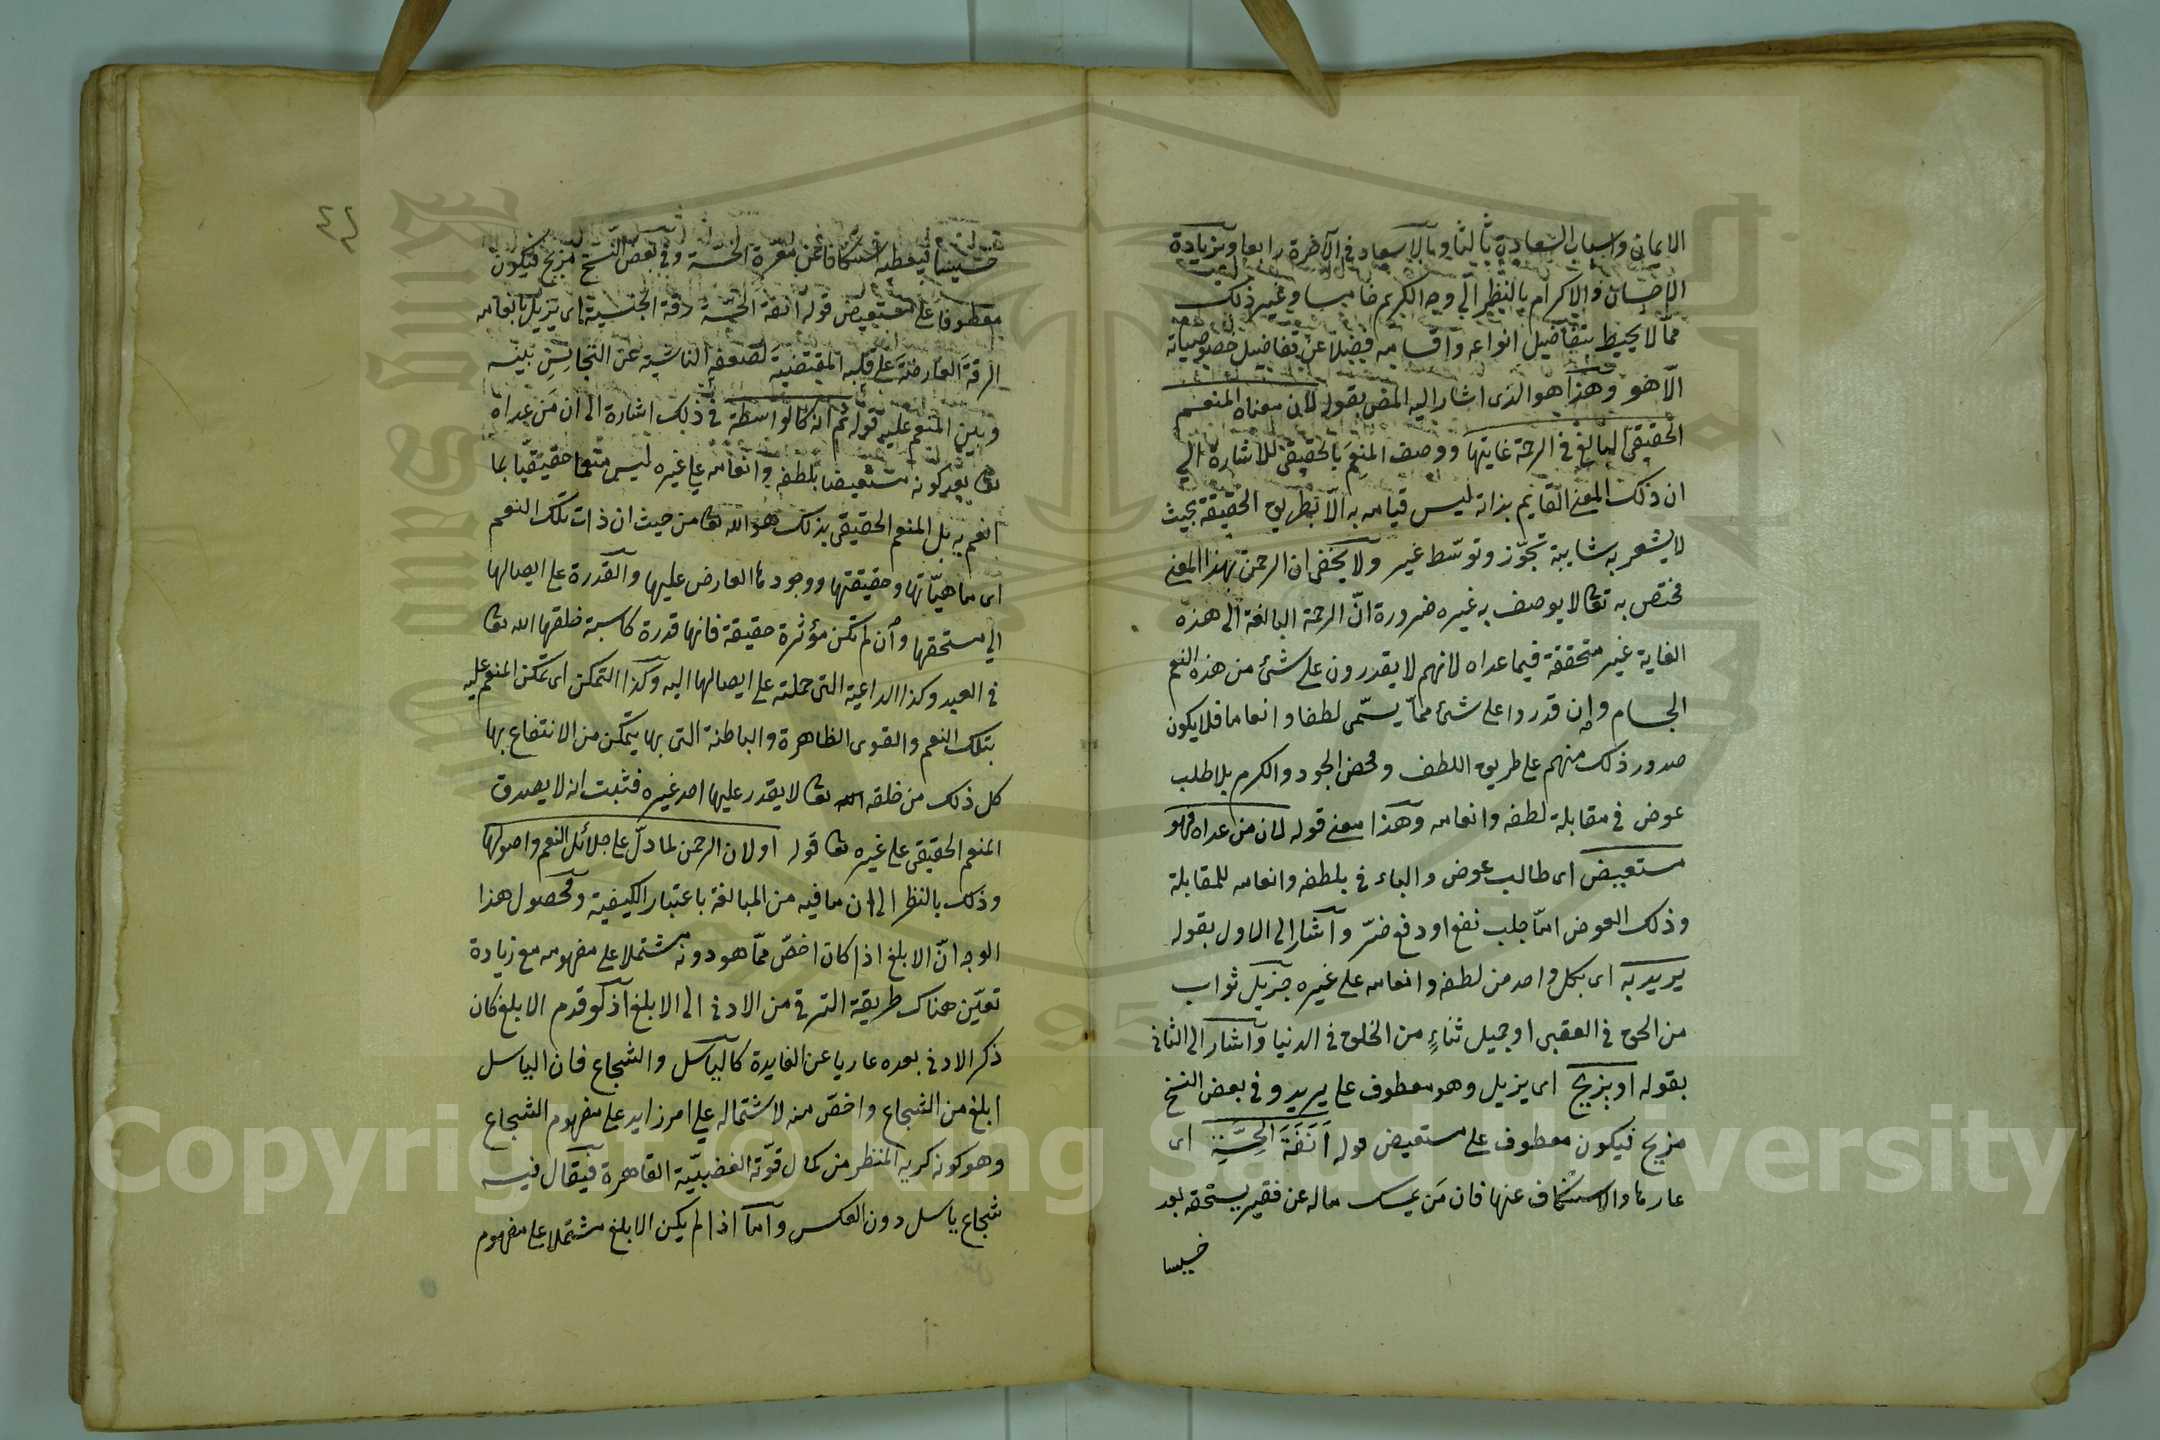 الايمان واسباب السعادة ثالثا وبالاسعاد في الآخرة رابعا وبزيادة
الاحسان والاكرام بالنظر الى وجه الكريم خامسا وغير ذلك
مما لا يحيط بتفاصيل انواعه واقسامه فضلا عن تفاصيل خصوصياته
الا هو وهذا هو الذى اشار اليه المص بقوله لان معناه المنعم
الحقيقى البالغ في الرحمة غايتها ووصف المنعم بالحقيقى للاشارة الى
ان ذلك المعنى القايم بذاته ليس قيامه به الا بطريق الحقيقة بحيث
لا يشعر به شايبة تجوّز وتوسّط غير ولا يخفى ان الرحمن بهذا المعنى
مختص به تعا لا يوصف به غيره ضرورة انّ الرحمة البالغة الى هذه
الغاية غير متحققة فيما عداه لانهم لا يقدرون على شئ من هذه النعم
الجسام وإن قدروا على شئ ممّا يسمّى لطفا وانعاما فلا يكون
صدور ذلك منهم على طريق اللطف ومحض الجود والكرم بلا طلب
عوض في مقابلة لطفه وانعامه وهذا معنى قوله لان من عداه فهو
مستعيض اى طالب عوض والباء في بلطفه وانعامه للمقابلة
وذلك العوض امّا جلب نفع او دفع ضرّ واشار الى الاول بقوله
يريد به اى بكل واحد من لطفه وانعامه على غيره جزيل ثواب
من الحق في العقبى او جميل ثناءٍ من الخلق في الدنيا واشار الى الثانى
بقوله او يزيح اى يزيل وهو معطوف على يريد وفي بعض النسخ
مزيح فيكون معطوف على مستعيض قوله اَنَفَةَ الخِسَّةِ اى
عارها والاستنكاف عنها فان مَن يمسك ماله عن فقير يستحقه يعد
خسيسا
خسيسا فيعطيه استنكافا عن معرة الخسة وفي بعض النسخ مزيح فيكون
معطوفا على مستعيض قوله انفة الخسّة رقة الجنسية اى يزيل بانعامه
الرقةَ العارضةَ على قلبه المقتضيةَ لضعفه الناشيَة عن التجانس بينه
وبين المنعم عليه قوله ثم انه كالواسطة في ذلك اشارة الى ان من عداه
تعا بعد كونه مستعيضا بلطفه وانعامه على غيره ليس منعما حقيقيا بما
انعم به بل المنعم الحقيقى بذلك هو الله تعا من حيث ان ذات تلك النعم
اى ماهيّاتها وحقيقتها ووجودها العارض عليها والقدرة على ايصالها
الى مستحقها وان لم تكن مؤثرة حقيقة فانها قدرة كاسبة خلقها الله تعا
في العبد وكذا الداعية التى حملته على ايصالها اليه وكذا التمكن اى تمكن المنعم عليه
بتلك النعم والقوى الظاهرة والباطنة التى بها يتمكن من الانتفاع بها
كل ذلك من خلقه الله تعا لا يقدر عليها احد غيره فثبت انه لا يصدق
المنعم الحقيقى على غيره تعا قوله او لان الرحمن لما دلّ على جلائل النعم واصولها
وذلك بالنظر الى ان ما فيه من المبالغة باعتبار الكيفية ومحصول هذا
الوجه انّ الابلغ اذا كان اخصّ ممّا هو دونه مشتملا على مفهومه مع زيادة
تعيّن هناك طريقة الترقى من الادنى الى الابلغ اذ لو قدم الابلغ كان
ذكر الادنى بعده عاريا عن الفايدة كالباسل والشجاع فان الباسل
ابلغ من الشجاع واخصّ منه لاشتماله على امر زايد على مفهوم الشجاع
وهو كونه كريه المنظر من كمال قوّته الغضبيّة القاهرة فيقال فيه
شجاع باسل دون العكس وامّا اذا لم يكن الابلغ مشتملا على مفهوم
Copyright © King Saud University